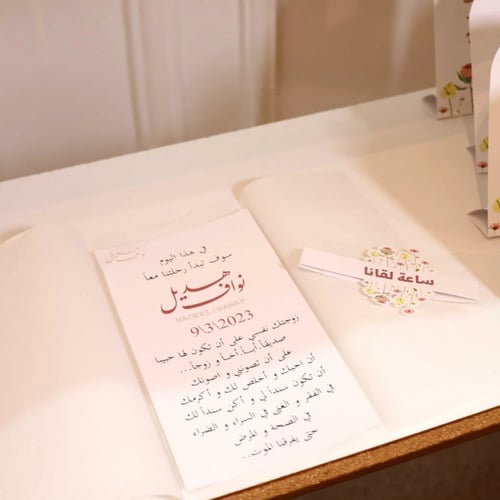 في هذا اليوم
سوف تبدأ رحلتنا معاً
هديل
نواف
HADEEL | NAWAF
9\3\2023
زوجتك نفسي على أن تكون لها حبيبا
صديقاً.أباً.أخاً و زوجاً...
على أن تصونني و أصونك
أن احبك و أخلص لك و أكرمك
أن تكون سنداً لي و أكن سنداً لك
في الفقر و الغنى في السراء و الضراء
في الصحة و المرض
حتى يفرقنا الموت..
ساعة لقانا